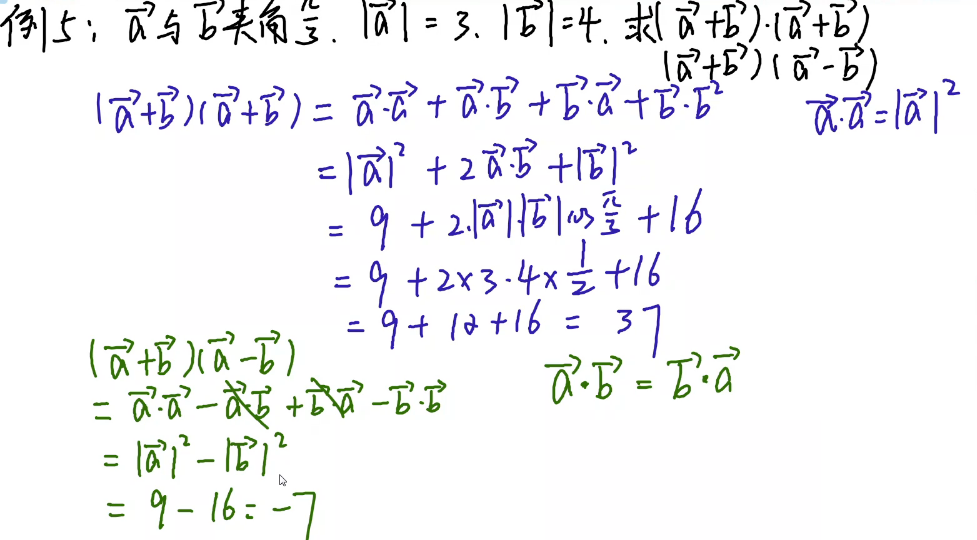 例5：a⃗与b⃗夹角π/3. |a⃗|=3. |b⃗|=4. 求(a⃗+b⃗)·(a⃗+b⃗)
(a⃗+b⃗)(a⃗-b⃗)
(a⃗+b⃗)(a⃗+b⃗) = a⃗·a⃗ + a⃗·b⃗ + b⃗·a⃗ + b⃗·b⃗²
a⃗·a⃗=|a⃗|²
= |a⃗|² + 2a⃗·b⃗ + |b⃗|²
= 9 + 2·|a⃗|·|b⃗|cos π/3 + 16
= 9 + 2×3·4×1/2 + 16
= 9 + 12 + 16 = 37
(a⃗+b⃗)(a⃗-b⃗)
= a⃗·a⃗ - a⃗·b⃗ + b⃗·a⃗ - b⃗·b⃗
= |a⃗|² - |b⃗|²
= 9 - 16 = -7
a⃗·b⃗ = b⃗·a⃗